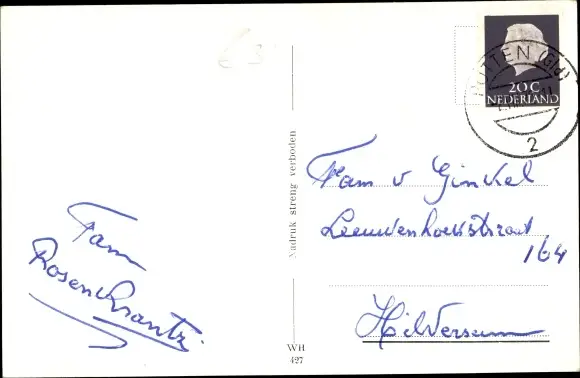 PUTTEN (Gld)
20 C
NEDERLAND
2
Fam v Ginkel
Leeuwenhoekstraat
164
Hilversum
Nadruk streng verboden
Fam
Rosenkrantz
WH
427